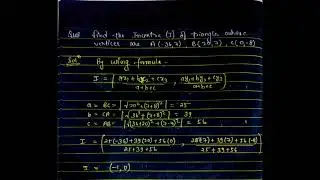 Que find the Incentre (I) of triangle whose
vertices are A(-36,7) B(20,7), C(0,-8)
Sol^n By using formula -
I = [ax₁ + bx₂ + cx₃ / a+b+c , ay₁ + by₂ + cy₃ / a+b+c]
a = BC = √20² + (7+8)² = 25
b = CA = √36² + (7+8)² = 39
c = AB = √(36+20)² + (7-7)² = 56
I = [25(-36) + 39(20) + 56(0) / 25+39+56 , 25(7) + 39(7) + 56(-8) / 25+39+56]
I = (-1, 0)